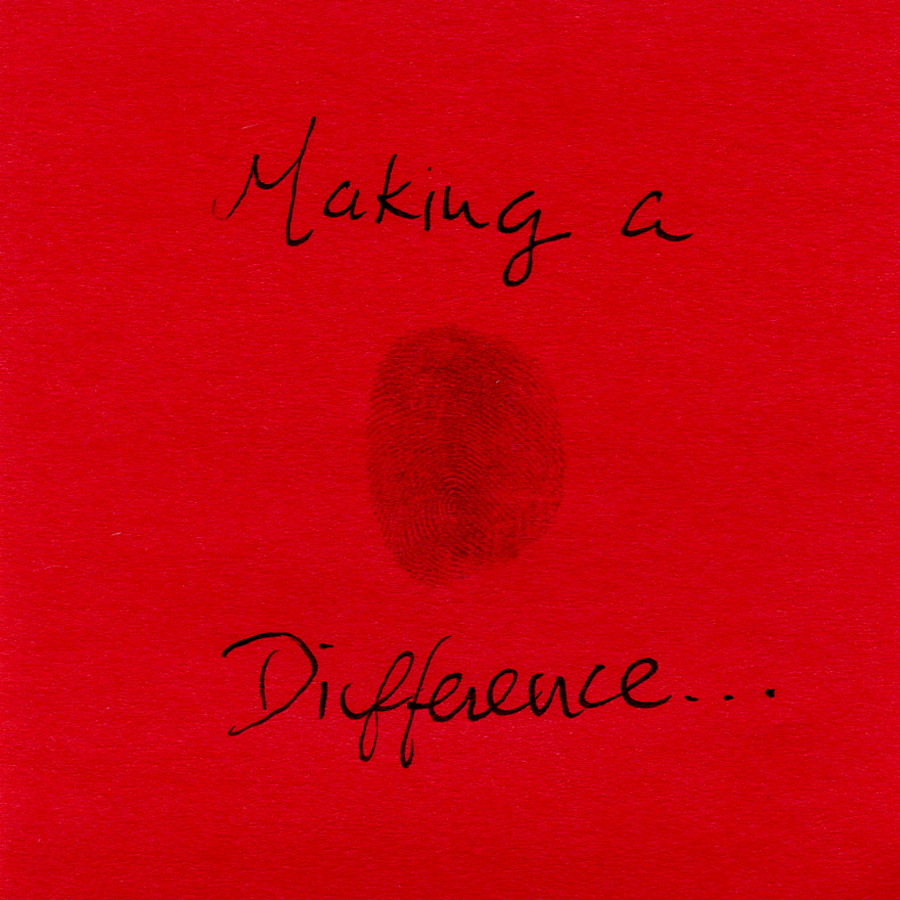 Making a
Difference...